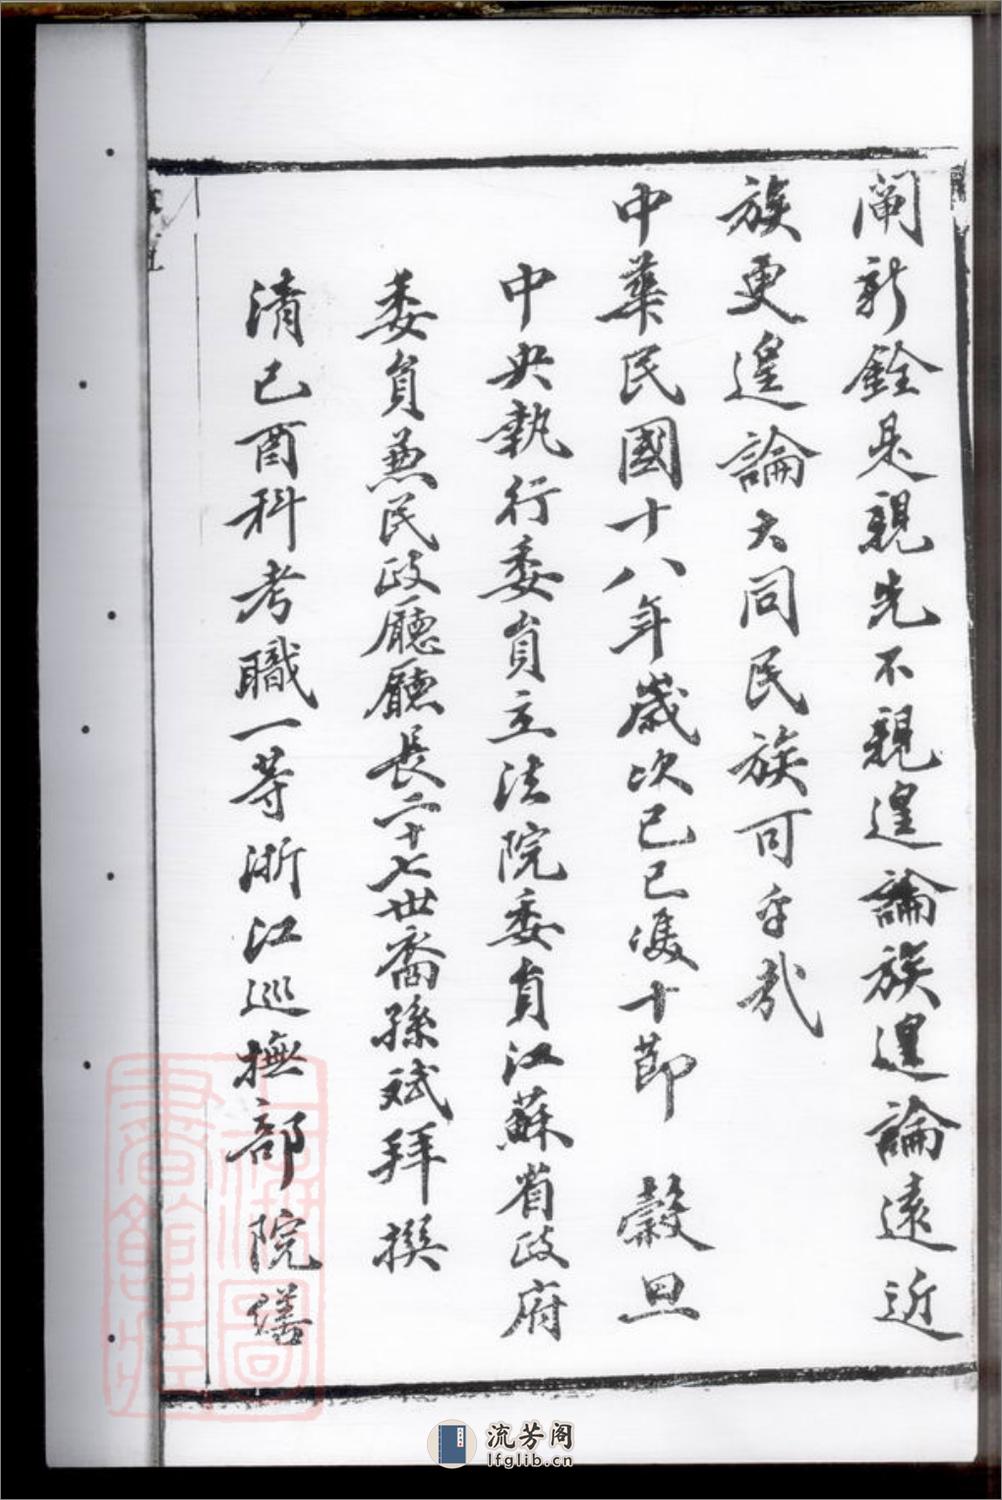 闡新銓是親先不親遑論族遑論遠近
族更遑論大同民族可乎哉
中華民國十八年歲次己巳雙十節 穀旦
中央執行委員立法院委員江蘇省政府
委員兼民政廳廳長二十七世裔孫斌拜撰
清己酉科考職一等浙江巡撫部院繕
流芳阁
lfglib.cn